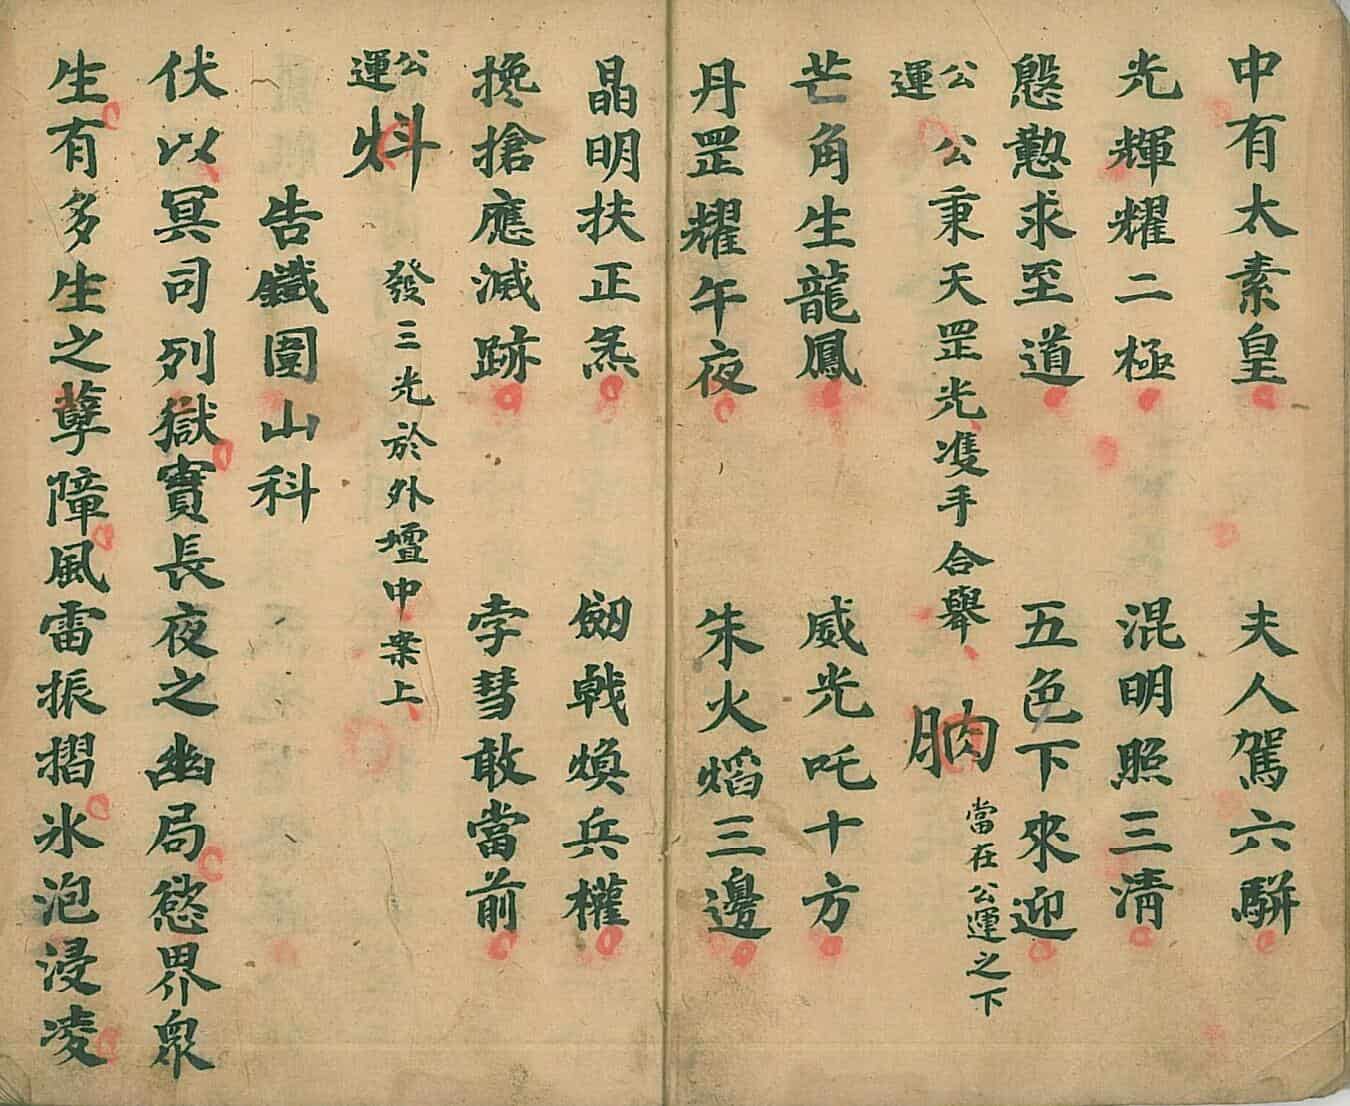 中有太素皇　夫人駕六駢
光輝耀二極　混明照三清
慇懃求至道　五色下來迎
公運　公秉天罡光隻手合舉　肭　當在公運之下
芒角生龍鳳　威光吒十方
丹罡耀午夜　朱火熖三邊
晶明扶正炁　劔戟煥兵權
攙搶應滅跡　孛彗敢當前
公運　炓　發三光於外壇中案上
告鐵圍山科
伏以冥司列獄實長夜之幽局慾界衆
生有多生之孽障風雷振摺氷泡浸凌